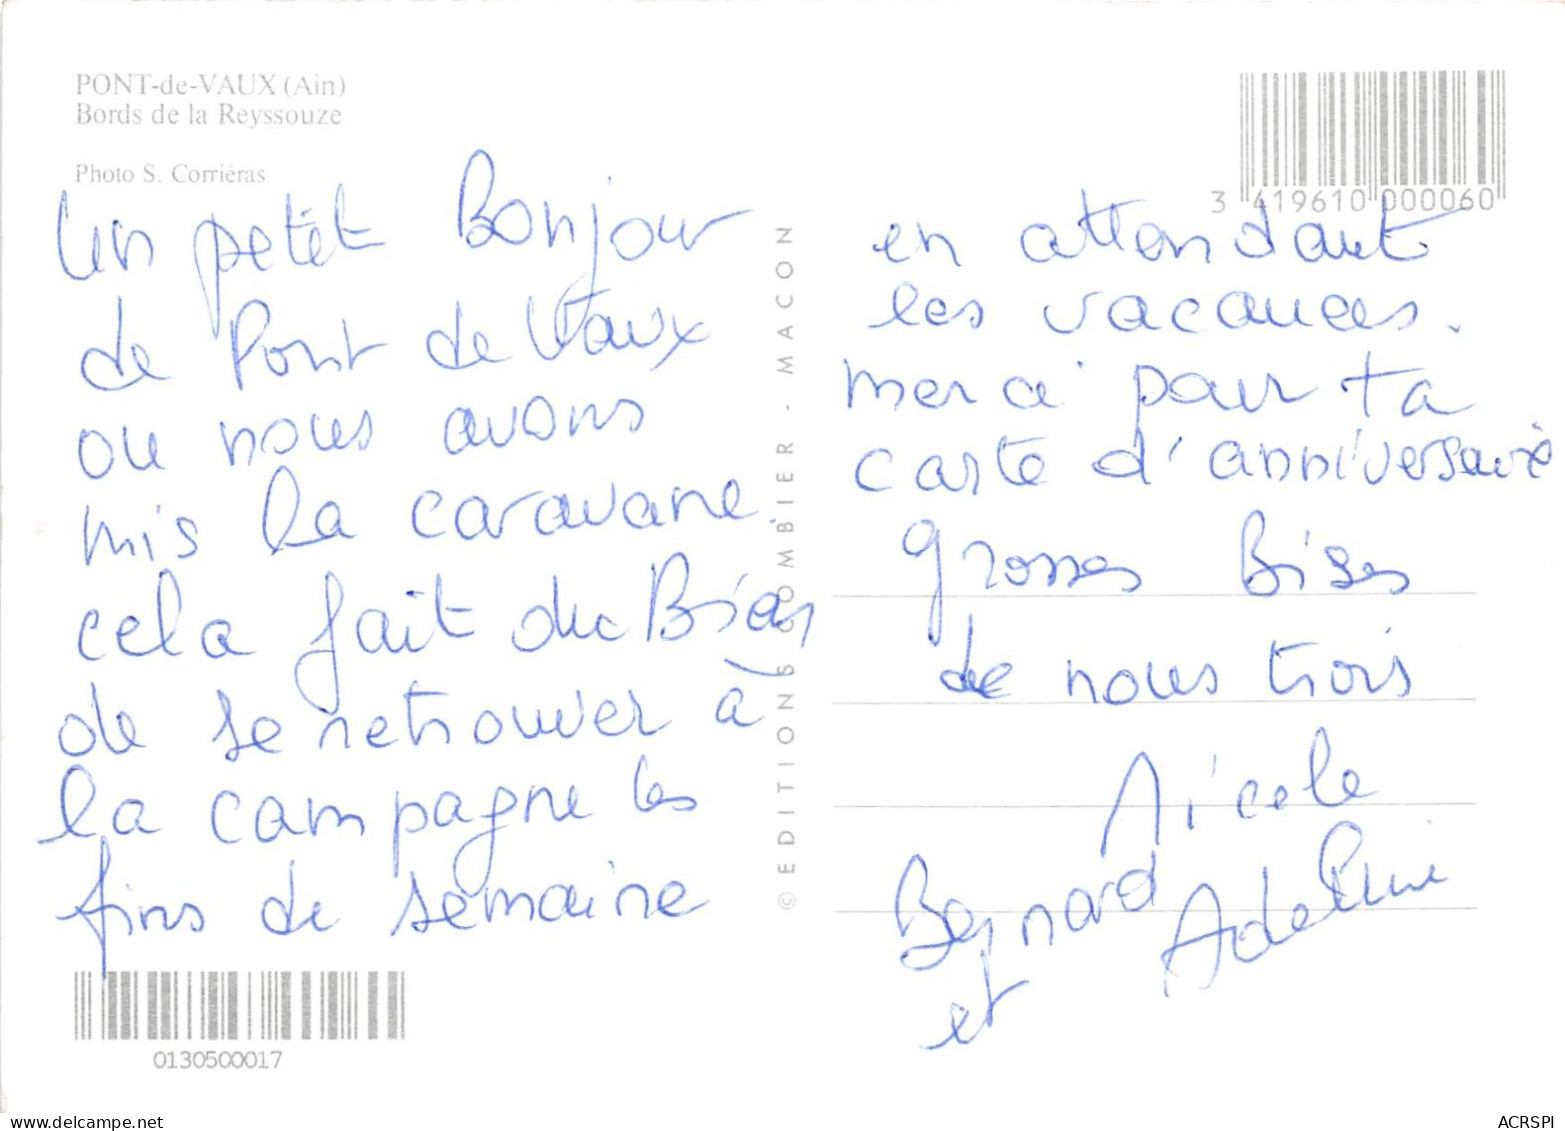 PONT-de-VAUX (Ain)
Bords de la Reyssouze
Photo S. Corriéras
Un petit Bonjour
de Pont de Vaux
ou nous avons
mis la caravane.
cela fait du Bien
de se retrouver à
la campagne les
fins de semaine
0130500017
© EDITIONS COMBIER - MACON
3 419610 000060
en attendant
les vacances.
merci pour ta
carte d'anniversaire
grosses Bises
de nous trois
Nicole
Bernard
et Adeline
www.delcampe.net
ACRSPI